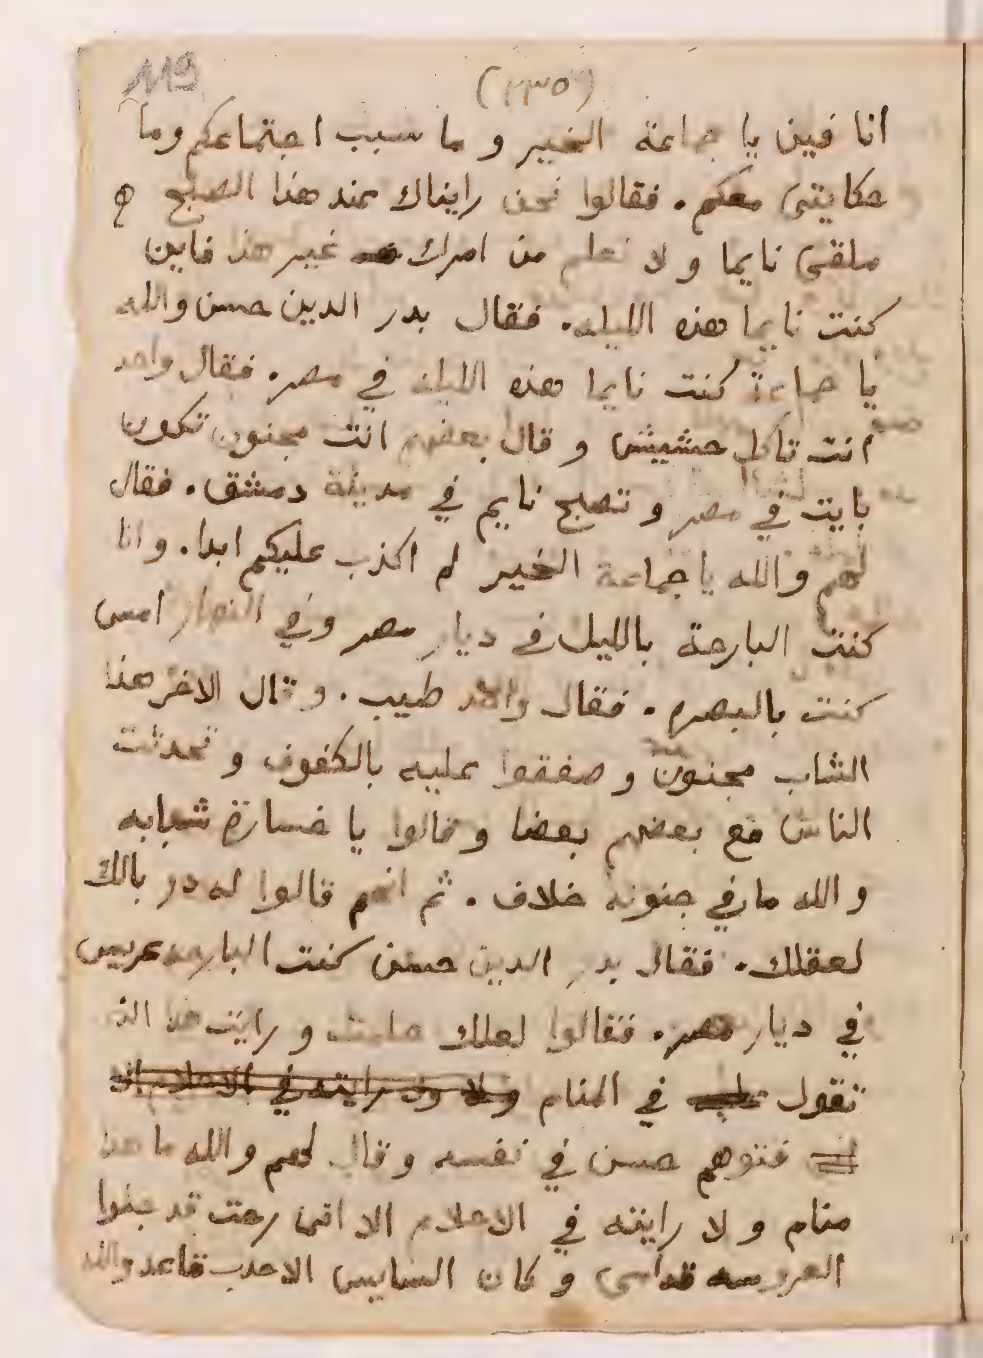 119
(١٣٥)
انا فين يا جماعة الخير و ما سبب اجتماعكم وما
حكايتى معكم. فقالوا نحن رايناك عند هذا الصبح
ملقى نايما و لا نعلم من امرك غير هذا فاين
كنت نايما هذه الليله. فقال بدر الدين حسن والله
يا جماعة كنت نايما هذه الليلة في مصر. فقال واحد
انت تاكل حشيش و قال بعضهم انت مجنون تكون
بايت في مصر و تصبح نايم في مدينة دمشق. فقال
لهم والله يا جماعة الخير لم اكذب عليكم ابدا. وانا
كنت البارحة بالليل في ديار مصر وفي النهار امس
كنت بالبصره. فقال واحد طيب. و قال الاخر هذا
الشاب مجنون و صفقوا عليه بالكفوف و تحدثت
الناس مع بعضهم بعضا و قالوا يا خسارة شبابه
و الله ما في جنونه خلاف. ثم انهم قالوا له در بالك
لعقلك. فقال بدر الدين حسن كنت البارحه عريس
في ديار مصر. فقالوا لعلك حلمت و رايت هذا الذى
تقول في المنام ولا رايته في الاحلام
فتوهم حسن في نفسه و قال لهم والله ما هذا
منام و لا رايته في الاحلام الا انى رحت قد جلوا
العروسه قدامى و كان السايس الاحدب قاعد والله